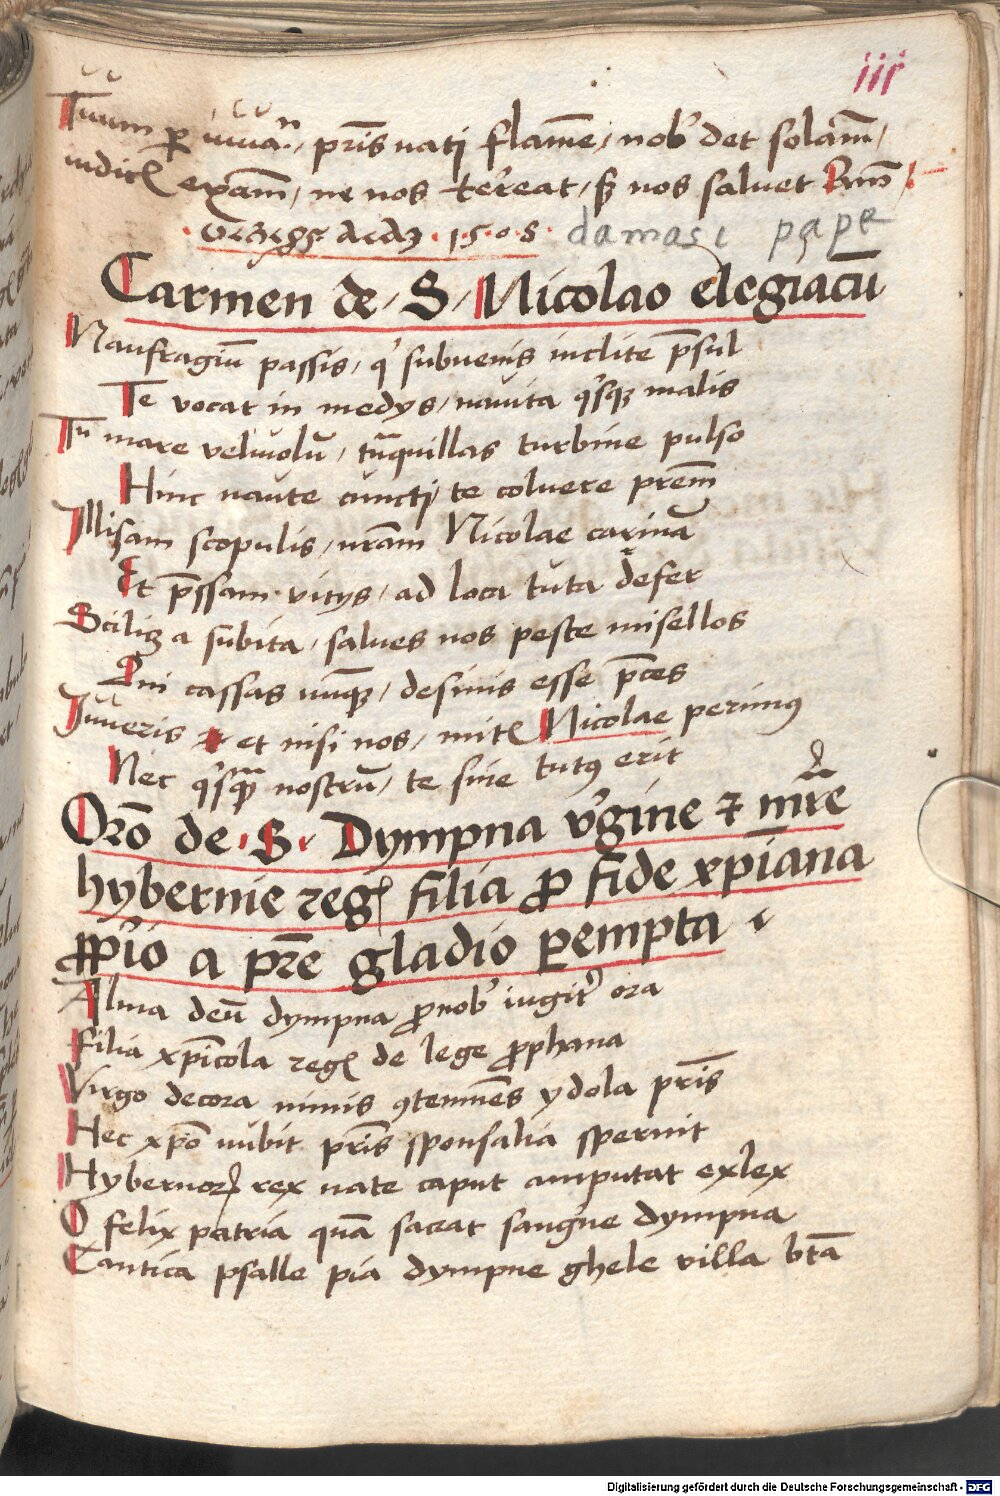 iij
Tuum per iuuan, pris nati flame, nob' det solam,
iudicis exam, ne nos terreat, s; nos saluet Amen
1508 damasi pape
Carmen de S Nicolao elegiacū
Naufragiū passis, q' subuenis inclite p̄sul
Te vocat in medys, nauita q'sq; malis
Tu mare veliuolū, trāquillas turbine pulso
Hinc naute cuncti te coluere prem̄
Miſam scopulis, nram Nicolae carinā
Et p̄ssam vitys, ad loca tuta defer
Scilicz a subita, salues nos peste misellos
Qui cassas nūq;, desinis esse p̄ces
Iuueris et nisi nos, mitis Nicolae perimus
Nec q'sq̄ nostrū, te sine tutus erit
Orō de S. Dympna v'gine ⁊ mr̄e
hybernie regis filia ꝓ fide xp̄iana
ꝓprio a pr̄e gladio ꝑempta
Alma deū dympna ꝓ nob' iugit' ora
Filia xp̄icola regis de lege ꝓphana
Virgo decora nimis ꝯtemnēs ydola pr̄is
Hec xp̄o nubit pr̄is sponsalia spernit
Hybernoꝝ rex nate caput amputat exlex
O felix patria quā sacrat sangine dympna
Cantica psalle pia dympne ghele villa btā
Digitalisierung gefördert durch die Deutsche Forschungsgemeinschaft - DFG